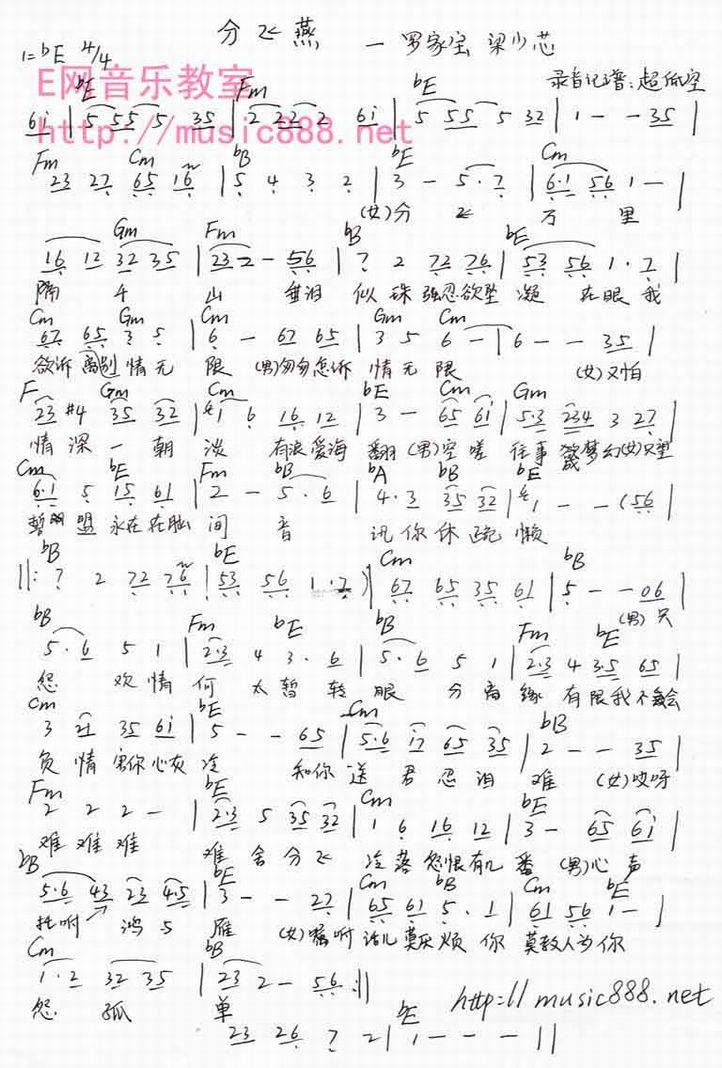 分飞燕 — 罗家宝 梁少芯
1=bE 4/4
E网音乐教室
http://music888.net
录音记谱:超低空
bE Fm bE
6i | 5 55 5 35 | 2 22 2 6i | 5 55 5 32 | 1 - - 35 |
Fm Cm bB bE Cm
23 27 65 16 | 5 4 3 2 | 3 - 5·7 | 6·1 56 1 - |
(女)分 飞 万 里
Gm Fm bB bE
16 12 32 35 | 23 2 - 56 | 7 2 72 76 | 53 56 1·7 |
隔 千 山 垂泪 似 珠 强忍欲坠 凝 在眼 我
Cm Gm Cm Gm Cm
67 65 3 5 | 6 - 67 65 | 3 5 6 - | 6 - - 35 |
欲诉 离别 情无 限 (男)匆匆怎诉 情无 限 (女)又怕
F Gm Cm bE Cm Gm
23 #4 35 32 | 1 6 16 12 | 3 - 65 6i | 5·3 234 3 27 |
情 深 一 朝 淡 有浪 爱海 翻 (男)空 嗟 往事 梦幻(女)只望
Cm bE Fm bB bA bB bE
6·1 5 15 61 | 2 - 5·6 | 4·3 35 32 | 1 - - (56 |
誓盟 永在 在脑 间 音 讯 你 休 疏 懒
bB bE Cm bB
||: 7 2 72 76 | 53 56 1·7) | 67 65 35 61 | 5 - - 06 |
(男)只
bB Fm bE bB Fm bE
5·6 5 1 | 2·3 4 3·6 | 5·6 5 1 | 2·3 4 35 65 |
怨 欢 情 何 太 暂 转 眼 分 离 缘 有限 我 不会
Cm bE Cm bB
3 21 35 6i | 5 - - 65 | 5·6 i7 65 35 | 2 - - 35 |
负 情 害你 心灰 冷 知你 送 君 忍 泪 难 (女)哎呀
Fm bE Cm bE
2 2 2 - | 2·3 5 35 32 | 1 6 16 12 | 3 - 65 6i |
难 难 难 难 舍 分 飞 冷 落 怨恨 有几 番 (男)心 声
bB bE Cm bB Cm bE
5·6 43 23 4·5 | 3 - - 27 | 65 61 5·1 | 61 56 1 - |
托咐 鸿 与 雁 (女)嘱咐 话儿 莫厌 烦 你 莫教人为 你
Cm bB
1·2 32 35 | 23 2 - 56 :||
怨 孤 单
http://music888.net
bE
23 26 7 2 | 1 - - - ||